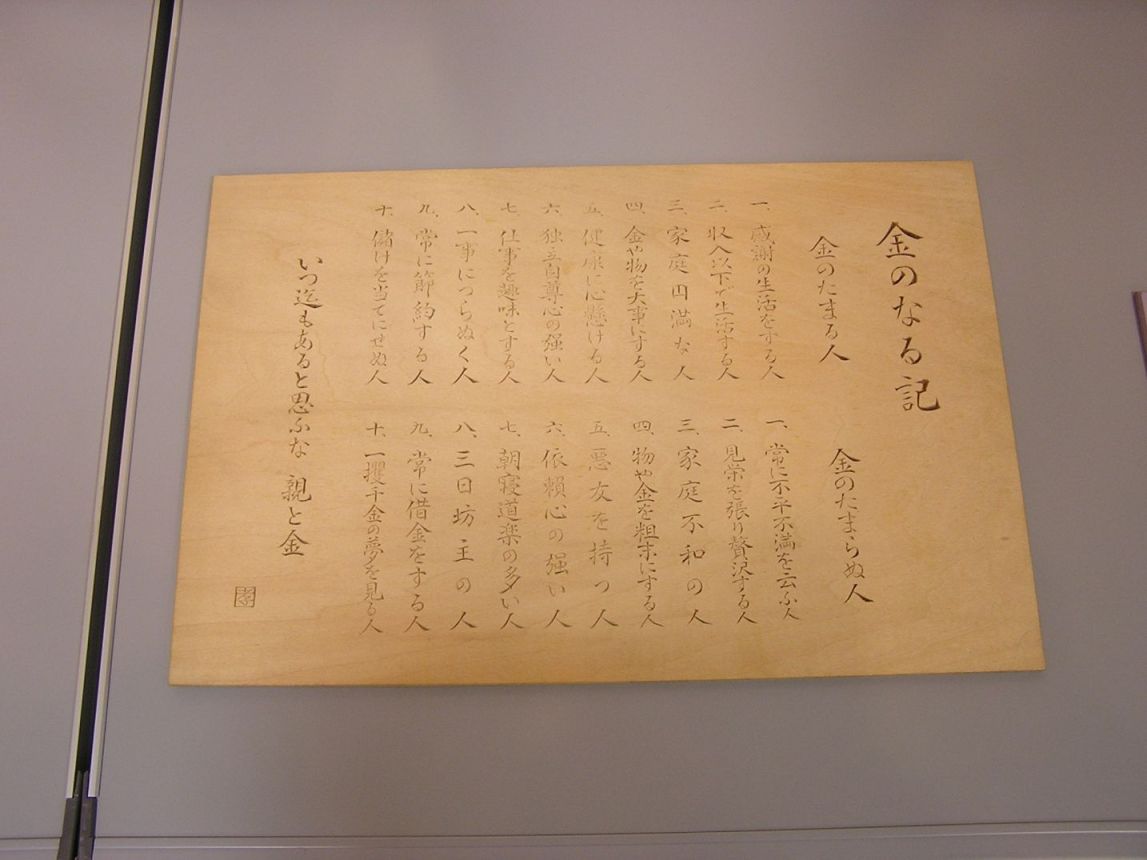 金のなる記
金のたまる人
一、感謝の生活をする人
二、収入以下で生活する人
三、家庭円満な人
四、金や物を大事にする人
五、健康に心懸ける人
六、独立自尊心の強い人
七、仕事を趣味とする人
八、一事につらぬく人
九、常に節約する人
十、儲けを当てにせぬ人
金のたまらぬ人
一、常に不平不満を云ふ人
二、見栄を張り贅沢する人
三、家庭不和の人
四、物や金を粗末にする人
五、悪友を持つ人
六、依頼心の強い人
七、朝寝道楽の多い人
八、三日坊主の人
九、常に借金をする人
十、一攫千金の夢を見る人
いつ迄もあると思ふな 親と金